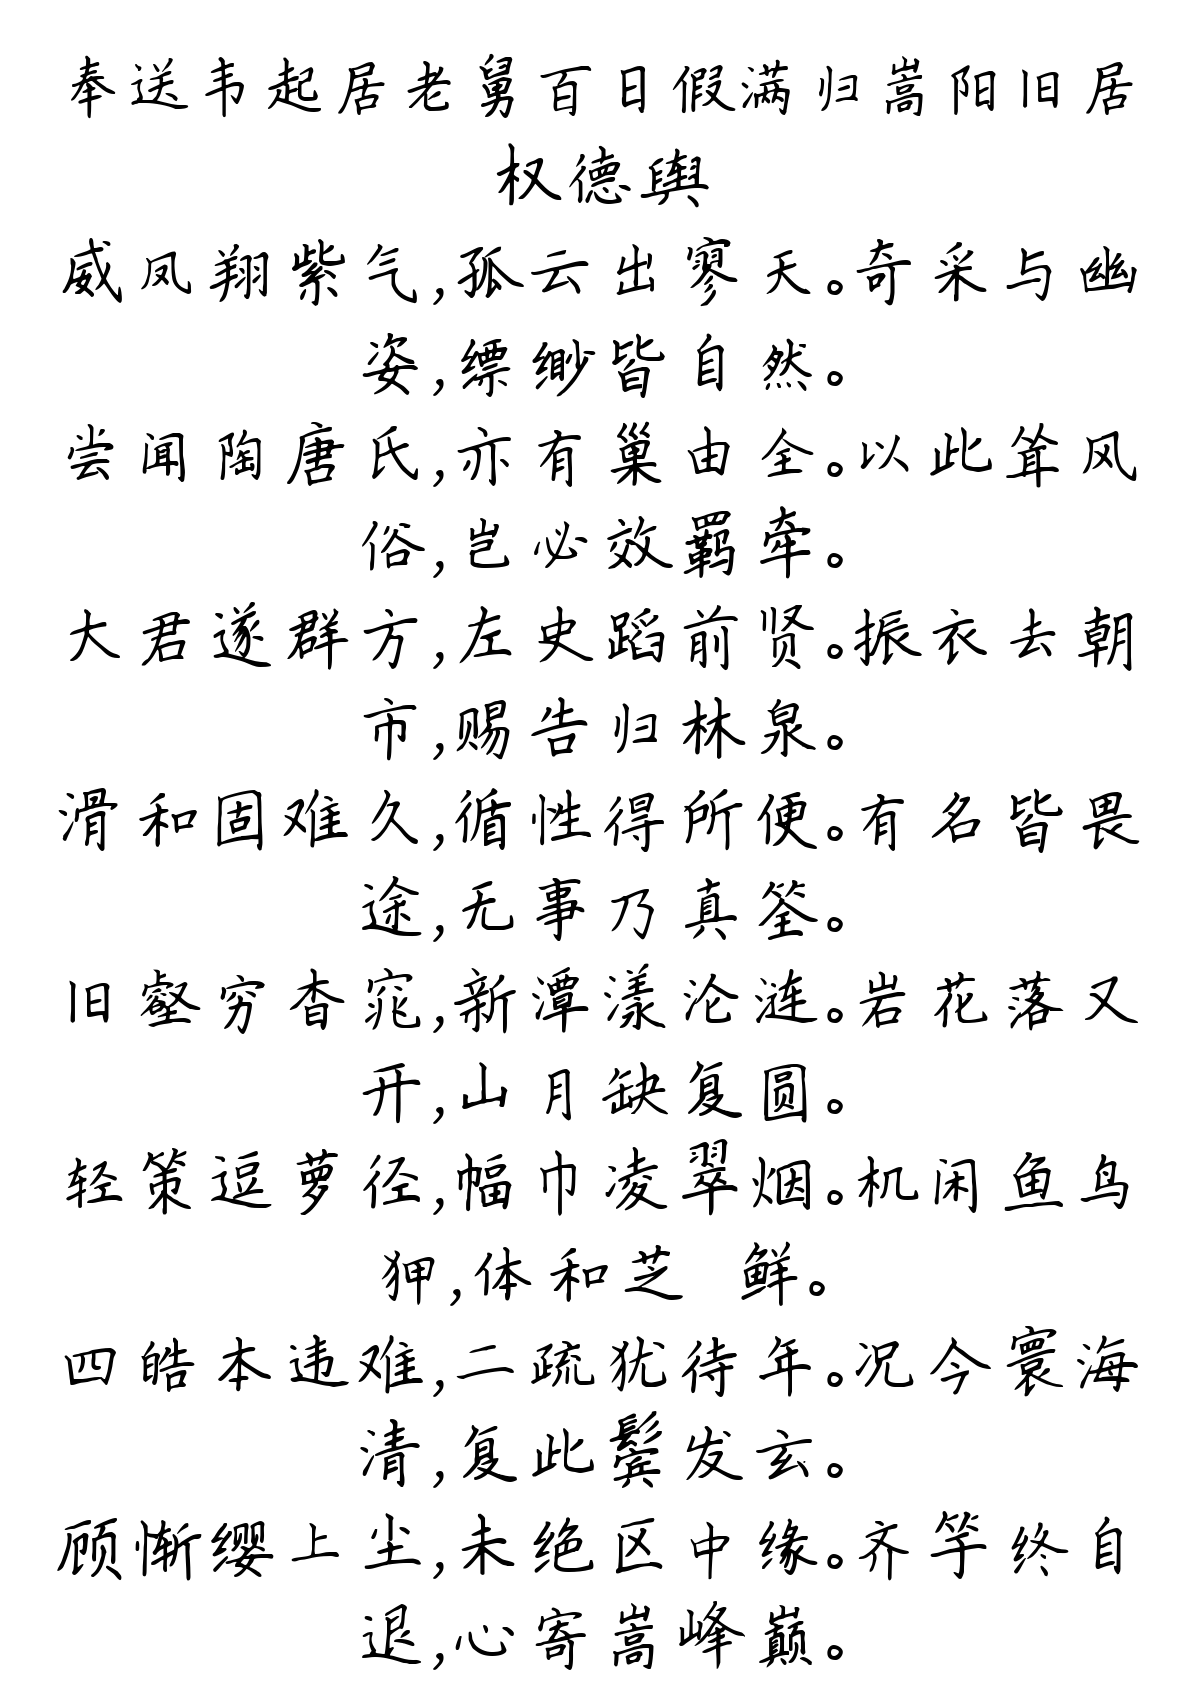 奉送韦起居老舅百日假满归嵩阳旧居
权德舆
威凤翔紫气,孤云出寥天。奇采与幽
姿,缥缈皆自然。
尝闻陶唐氏,亦有巢由全。以此耸风
俗,岂必效羁牵。
大君遂群方,左史蹈前贤。振衣去朝
市,赐告归林泉。
滑和固难久,循性得所便。有名皆畏
途,无事乃真筌。
旧壑穷杳窕,新潭漾沦涟。岩花落又
开,山月缺复圆。
轻策逗萝径,幅巾凌翠烟。机闲鱼鸟
狎,体和芝 鲜。
四皓本违难,二疏犹待年。况今寰海
清,复此鬓发玄。
顾惭缨上尘,未绝区中缘。齐竽终自
退,心寄嵩峰巅。